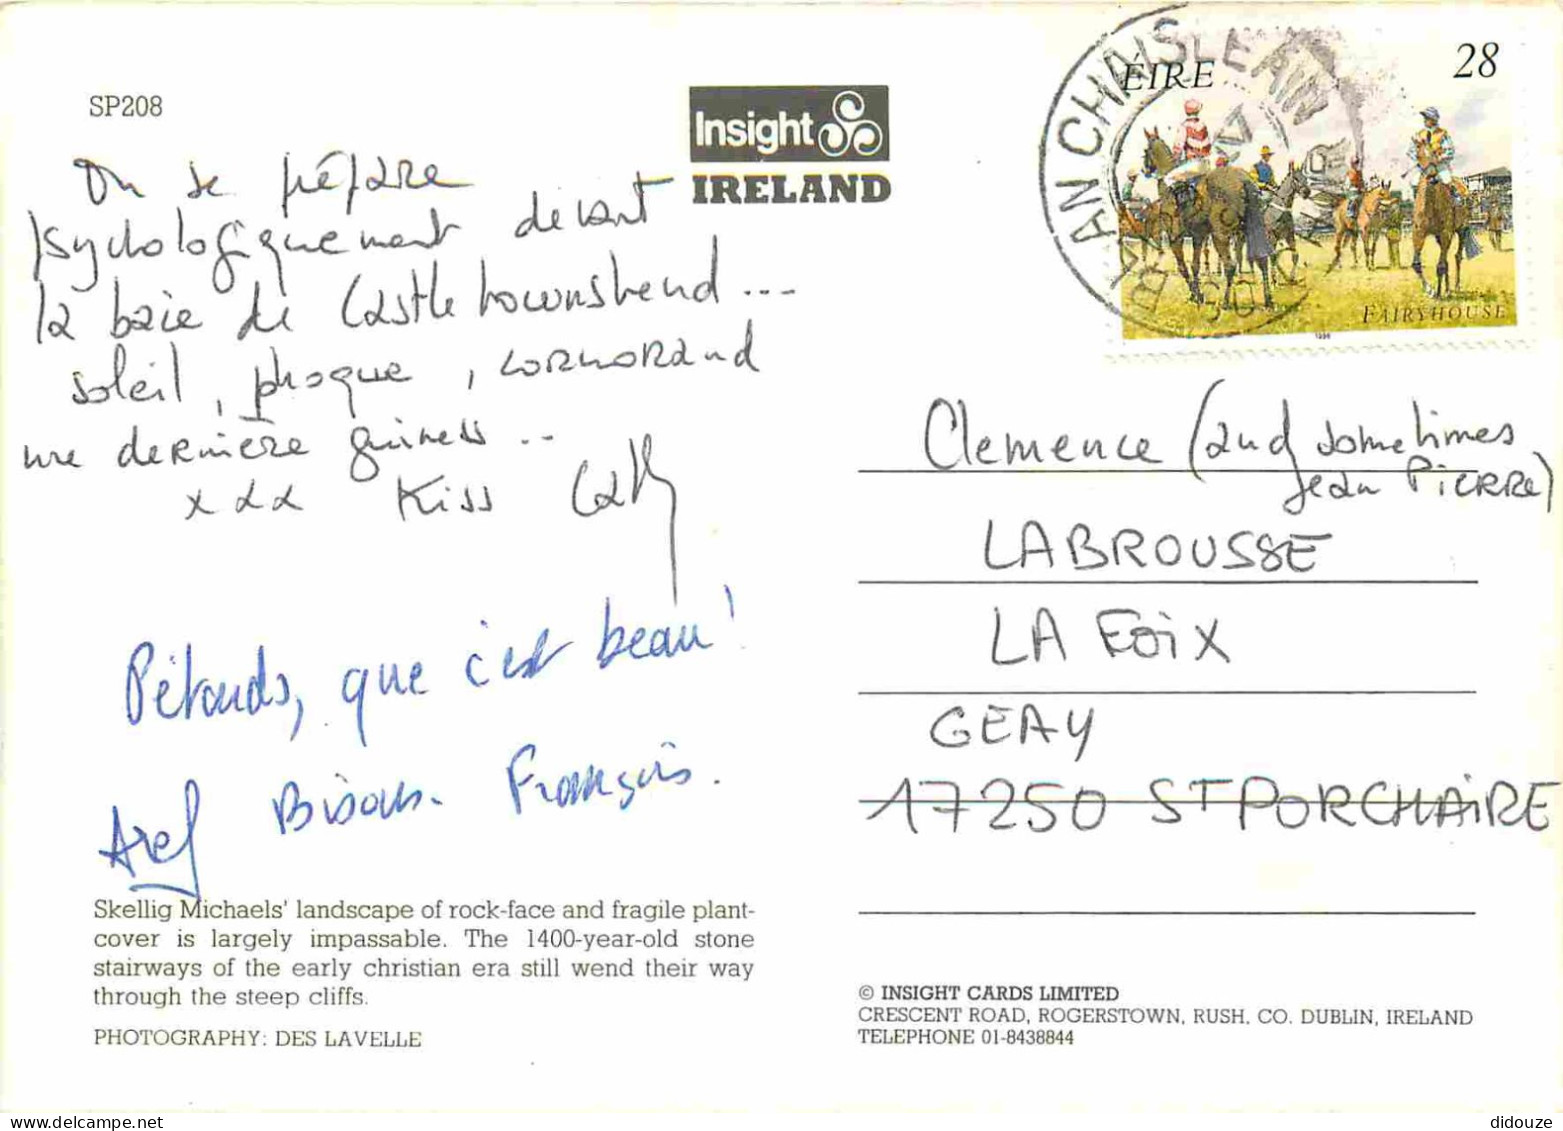 SP208
Insight
IRELAND
On se prépare
psychologiquement devant
la baie de Castletownshend...
soleil, phoque, cormorand
une dernière guiness...
xxx Kiss Cathy
Pétards, que c'est beau!
Bisous. François.
Skellig Michaels' landscape of rock-face and fragile plant-
cover is largely impassable. The 1400-year-old stone
stairways of the early christian era still wend their way
through the steep cliffs.
PHOTOGRAPHY: DES LAVELLE
AN CHAISLEAIN
ÉIRE
28
FAIRYHOUSE
1996
Clemence (and sometimes
Jean PiERRE)
LABROUSSE
LA FOiX
GEAY
17250 ST PORCHAiRE
© INSIGHT CARDS LIMITED
CRESCENT ROAD, ROGERSTOWN, RUSH, CO. DUBLIN, IRELAND
TELEPHONE 01-8438844
didouze